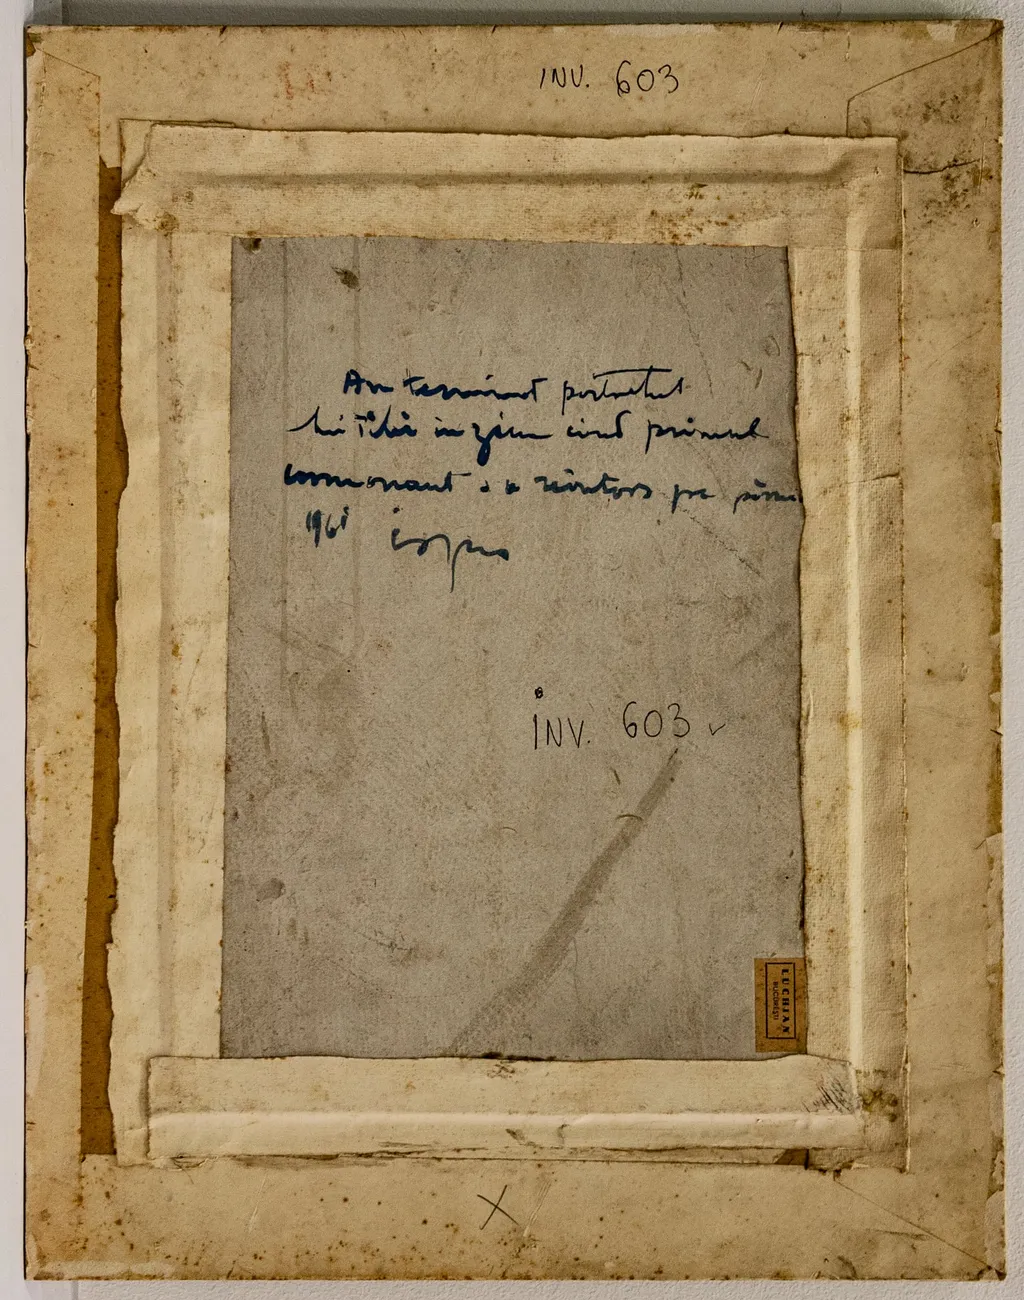 INV. 603
Am terminat portretul
lui Tibi in ziua cind primul
cosmonaut s-a reîntors pe
1961
INV. 603
LUCHIAN
BUCUREȘTI
X